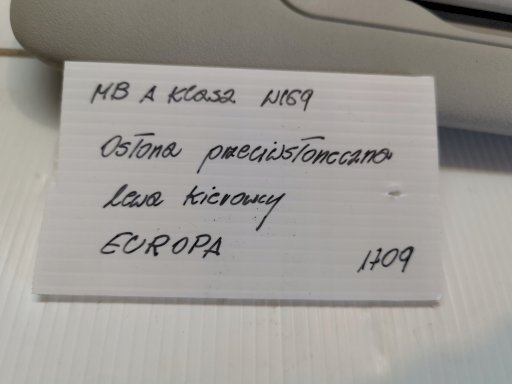 MB A Klasa W169
Osłona przeciwsłoneczna
lewa kierowcy
EUROPA
1709